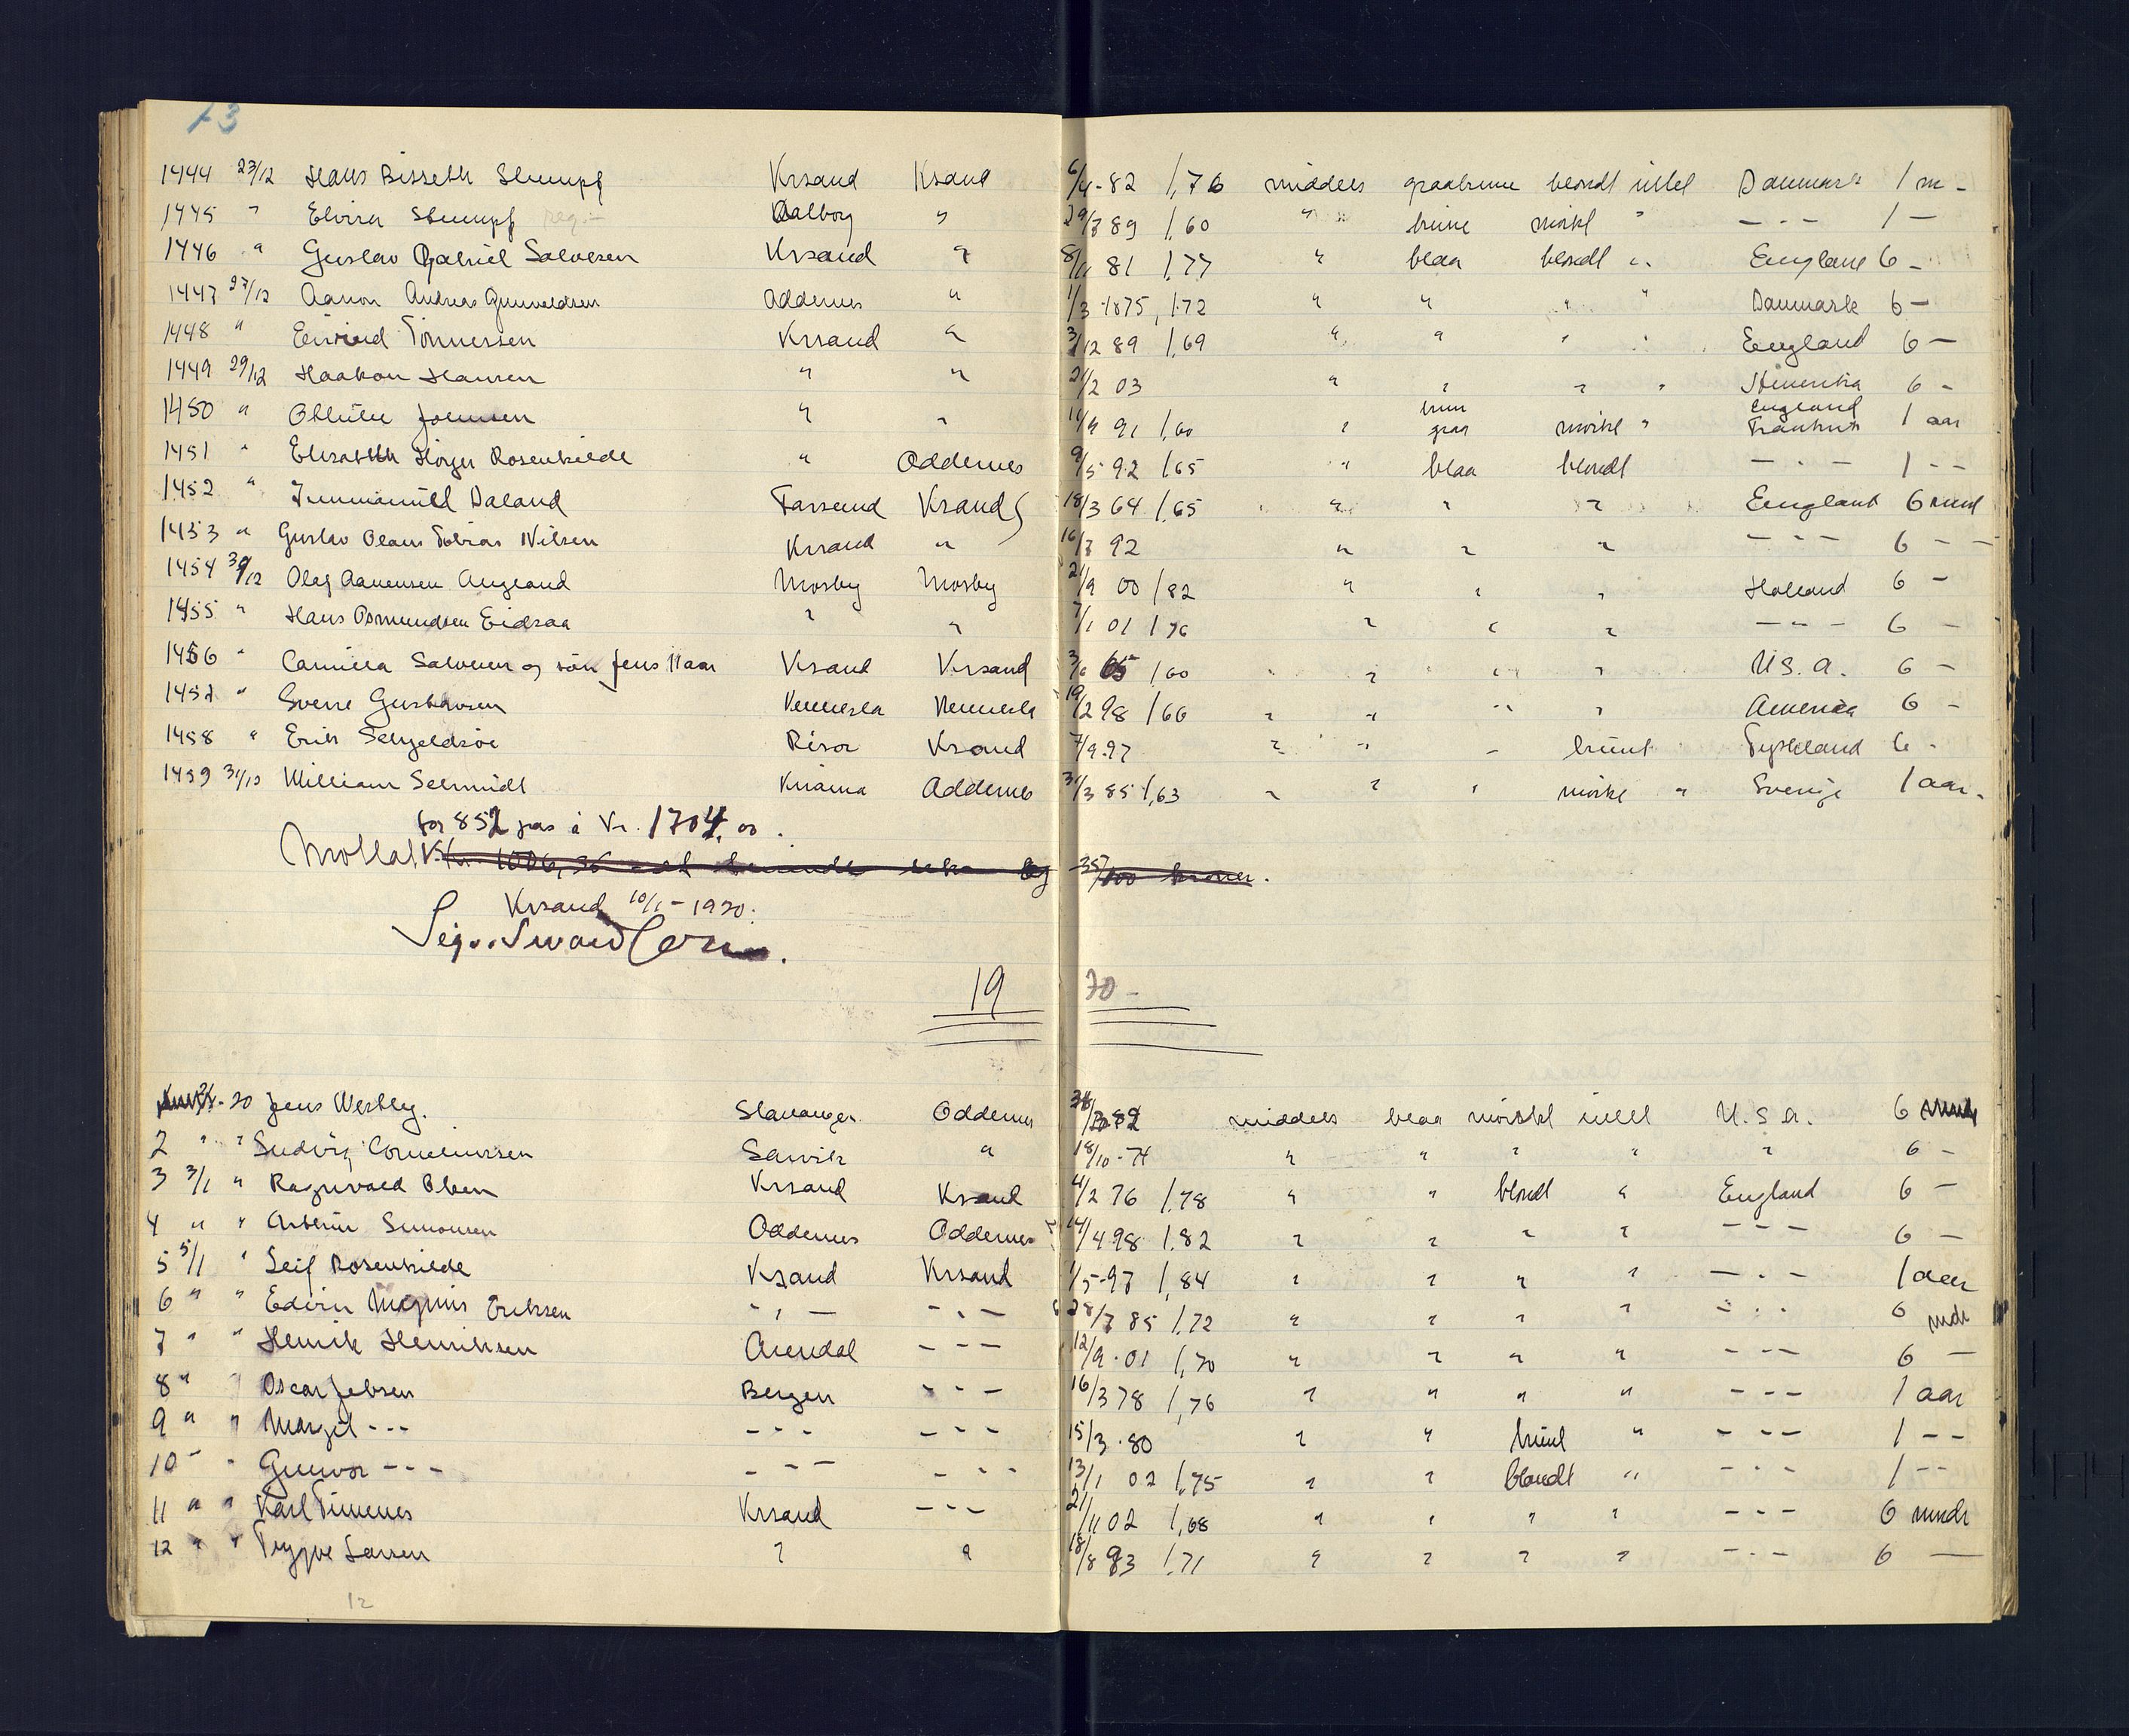 13
1444 23/12 Hans Bisseth Stumpf Krsand Krsand 6/4-82 1,76 middels graabrune blondt intet Danmark 1 m -
1445 " Elvira Stumpf Aalborg " 29/7 89 1,60 " brune mörkt " - - - 1 -
1446 " Gustav Gabriel Salvesen Krsand " 8/11 81 1,77 " blaa blondt " England 6 -
1447 27/12 Aanon Andreas Gunvaldsen Oddernes " 1/3 1875, 1.72 " " " " Danmark 6 -
1448 " Eivind Tönnessen Krsand " 3/12 89 1,69 " " " " England 6 -
1449 29/12 Haakon Hansen " " 21/2 03 " " " " Amerika 6 -
1450 " Johnsen " " 11/9 91 1,60 " brun graa mörkt " England Frankrik 1 aar
1451 " Elisabeth Höyer Rosenkilde " Oddernes 9/5 92 1,65 " blaa blondt - - - 1 - -
1452 " Daland Farsund Krsand 18/3 64 1,65 " " " England 6 mnd
1453 " Gustav Olaus Tobias Nilsen Krsand " 16/7 92 " " " - - - 6 - -
1454 30/12 Olaf Aanensen Augland Mosby Mosby 21/9 00 1,82 " " " Holland 6 -
1455 " Hans Osmundsen Eidsaa " " 7/1 01 1,76 " " " - - - 6 -
1456 " Camilla Salvesen og sön Jens 11 aar Krsand Krsand 3/6 65 1,60 " " " " U.S.A. 6 -
1457 " Sverre Gustavsen Vennesla Vennesla 19/2 98 1,66 " " " " Amerika 6 -
1458 " Erik Schjeldsöe Risör Krsand 7/9-97 " " " brunt Tyskland 6 -
1459 31/12 William Schmidt Kriania Oddernes 31/3 85 1,63 " " " mörkt " Sverige 1 aar.
for 852 pas à Kr. 1704,00.
Mottat 35/100 kroner.
Krsand 10/1 - 1920.
19 20 -
20 Jens Westby. Stavanger Oddernes 82 middels blaa mörkt intet U.S.A. 6
2 " " Ludvig Corneliussen " 18/10-74 " " " " " 6 -
3 3/1 " Ragnvald Olsen Krsand Krsand 4/2 76 1,78 " " blondt " England 6 -
4 " " Simonsen Oddernes Oddernes 14/4 98 1.82 " " " " - - - 6 -
5 5/1 " Leif Rosenkilde Krsand Krsand 1/5-97 1,84 " " " " - - - 1 aar
6 " " Edvin Magnus Eriksen - " - - " - 28/7 85 1,72 " " " " - - - 6 mdr
7 " " Henrik Henriksen Arendal - - - 12/9-01 1,70 " " " " - - - 6 -
8 " " Oscar Jebsen Bergen - - - 16/3 78 1,76 " " " " - - - 1 aar
9 " " Margit - - - - - - - - - 15/3-80 " " brunt " - - - 1 - -
10 " " Gunvor - - - - - - - - - 13/1 02 1,75 " " blondt " - - - 1 - -
11 " " Karl Timenes Krsand - - - 21/11 02 1,68 " " " " - - - 6 mndr
12 " " Trygve Larsen " " 18/8 93 1.71 " " " " - - - 6 -
12